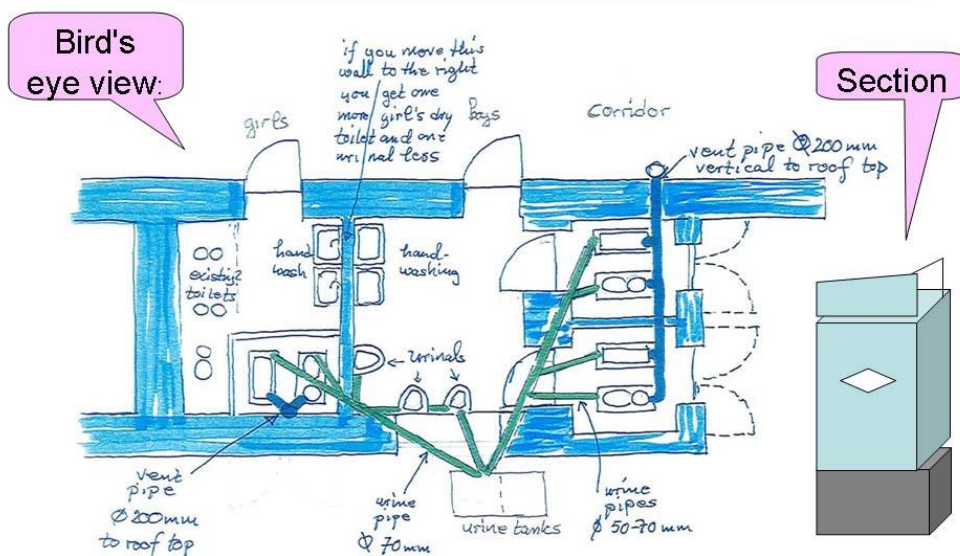 Bird's
eye view:
if you move this
wall to the right
you get one
more girl's dry
toilet and one
urinal less
Section
girls
boys
corridor
vent pipe Ø200mm
vertical to roof top
hand
wash
hand-
washing
existing
toilets
urinals
vent
pipe
Ø200mm
to roof top
urine
pipe
Ø 70mm
urine tanks
urine
pipes
Ø 50-70mm